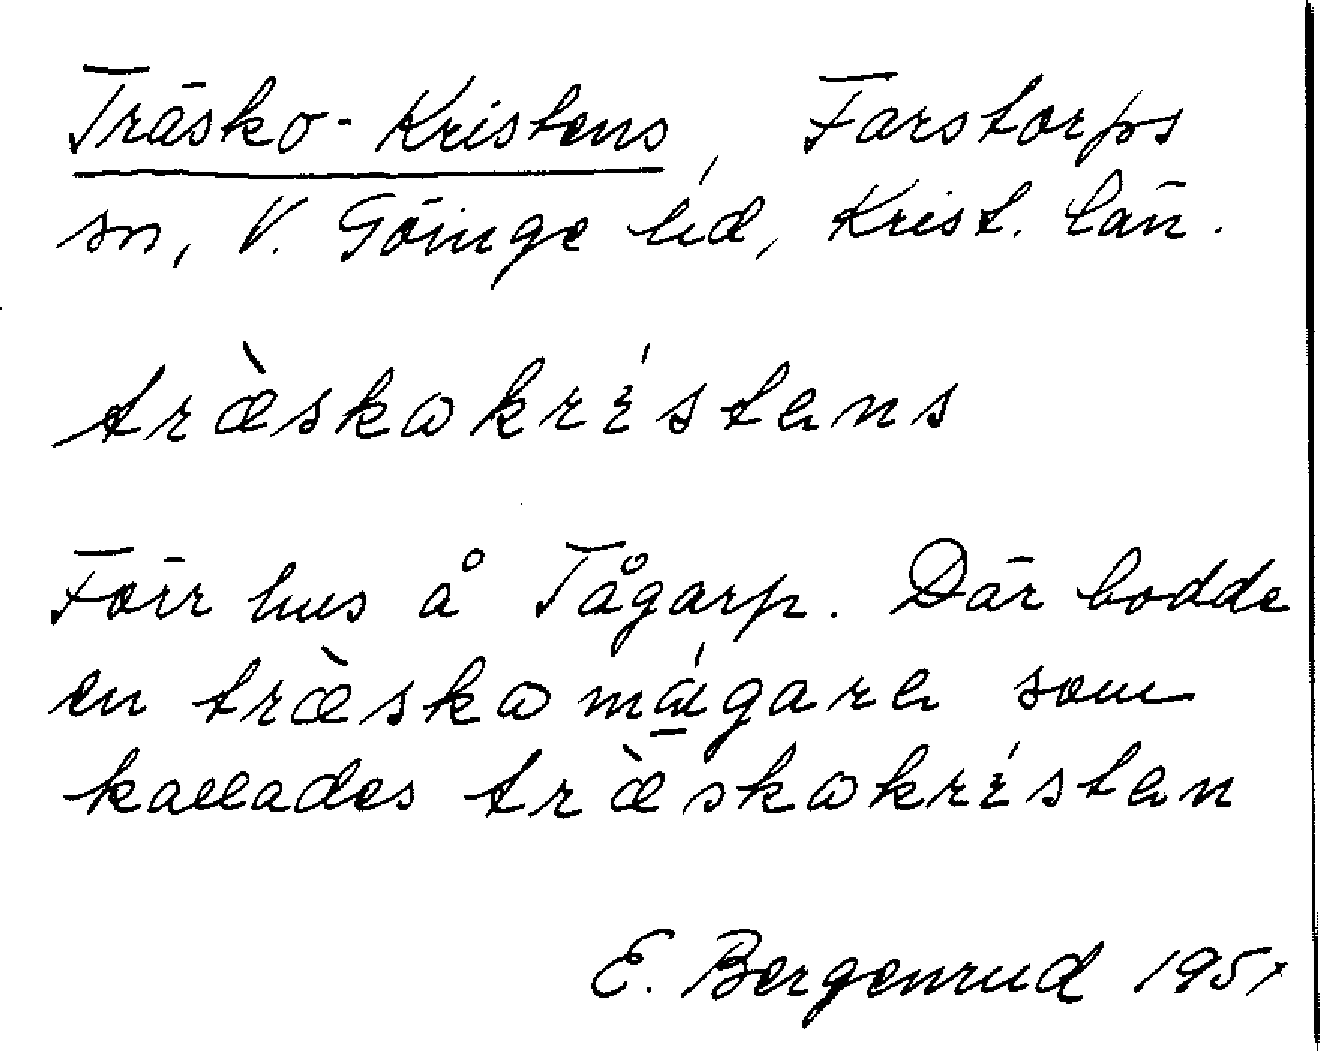 Träsko-Kristens, Farstorps
sn, V. Göinge hd, Krist. län.
træ̀skωkrístens
Förr hus å Tågarp. Där bodde
en træ̀skωmágare som
kallades træ̀skωkrísten
E. Bergenrud